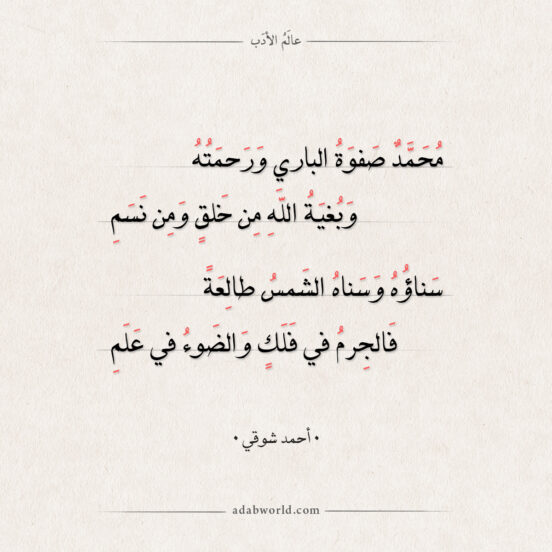 عالَمُ الأدَب
مُحَمَّدٌ صَفوَةُ الباري وَرَحمَتُهُ
وَبُغيَةُ اللَهِ مِن خَلقٍ وَمِن نَسَمِ
سَناؤُهُ وَسَناهُ الشَمسُ طالِعَةً
فَالجِرمُ في فَلَكٍ وَالضَوءُ في عَلَمِ
• أحمد شوقي •
adabworld.com